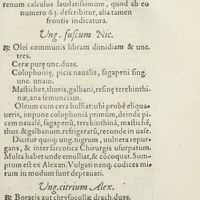 renum calculos laudatissimum, quod ab eo
numero 63. describitur, alia tamen
frontis indicatura.
Ung. fuscum Nic.
℞ Olei communis libram dimidiam & unc.
tres.
Ceræ puræ unc. duas.
Colophoniæ, picis naualis, sagapeni sing.
unc. unam.
Mastiches, thuris, galbani, resinę terebinthi-
næ, ana semunciam.
Oleum cum cera bulliat: ubi probè eliqua-
ueris, impone colophoniã primùm, deinde pi-
cem naualē, sagapenū, terebinthinã, mastichē,
thus. & galbanum. refrigeratū, reconde in usū.
Dicitur quoq; ung. nigrum, uulnera repur-
gans, & inter sarcotica Chirurgis usurpatum.
Multa habet unde emolliat, & cōcoquat. Sum-
ptum est ex Alexan. Vulgati nanq; codices mi-
rum in modum sunt deprauati.
Ung. citrium Alex.
℞ Boracis aut chrysocollæ drach. duas.